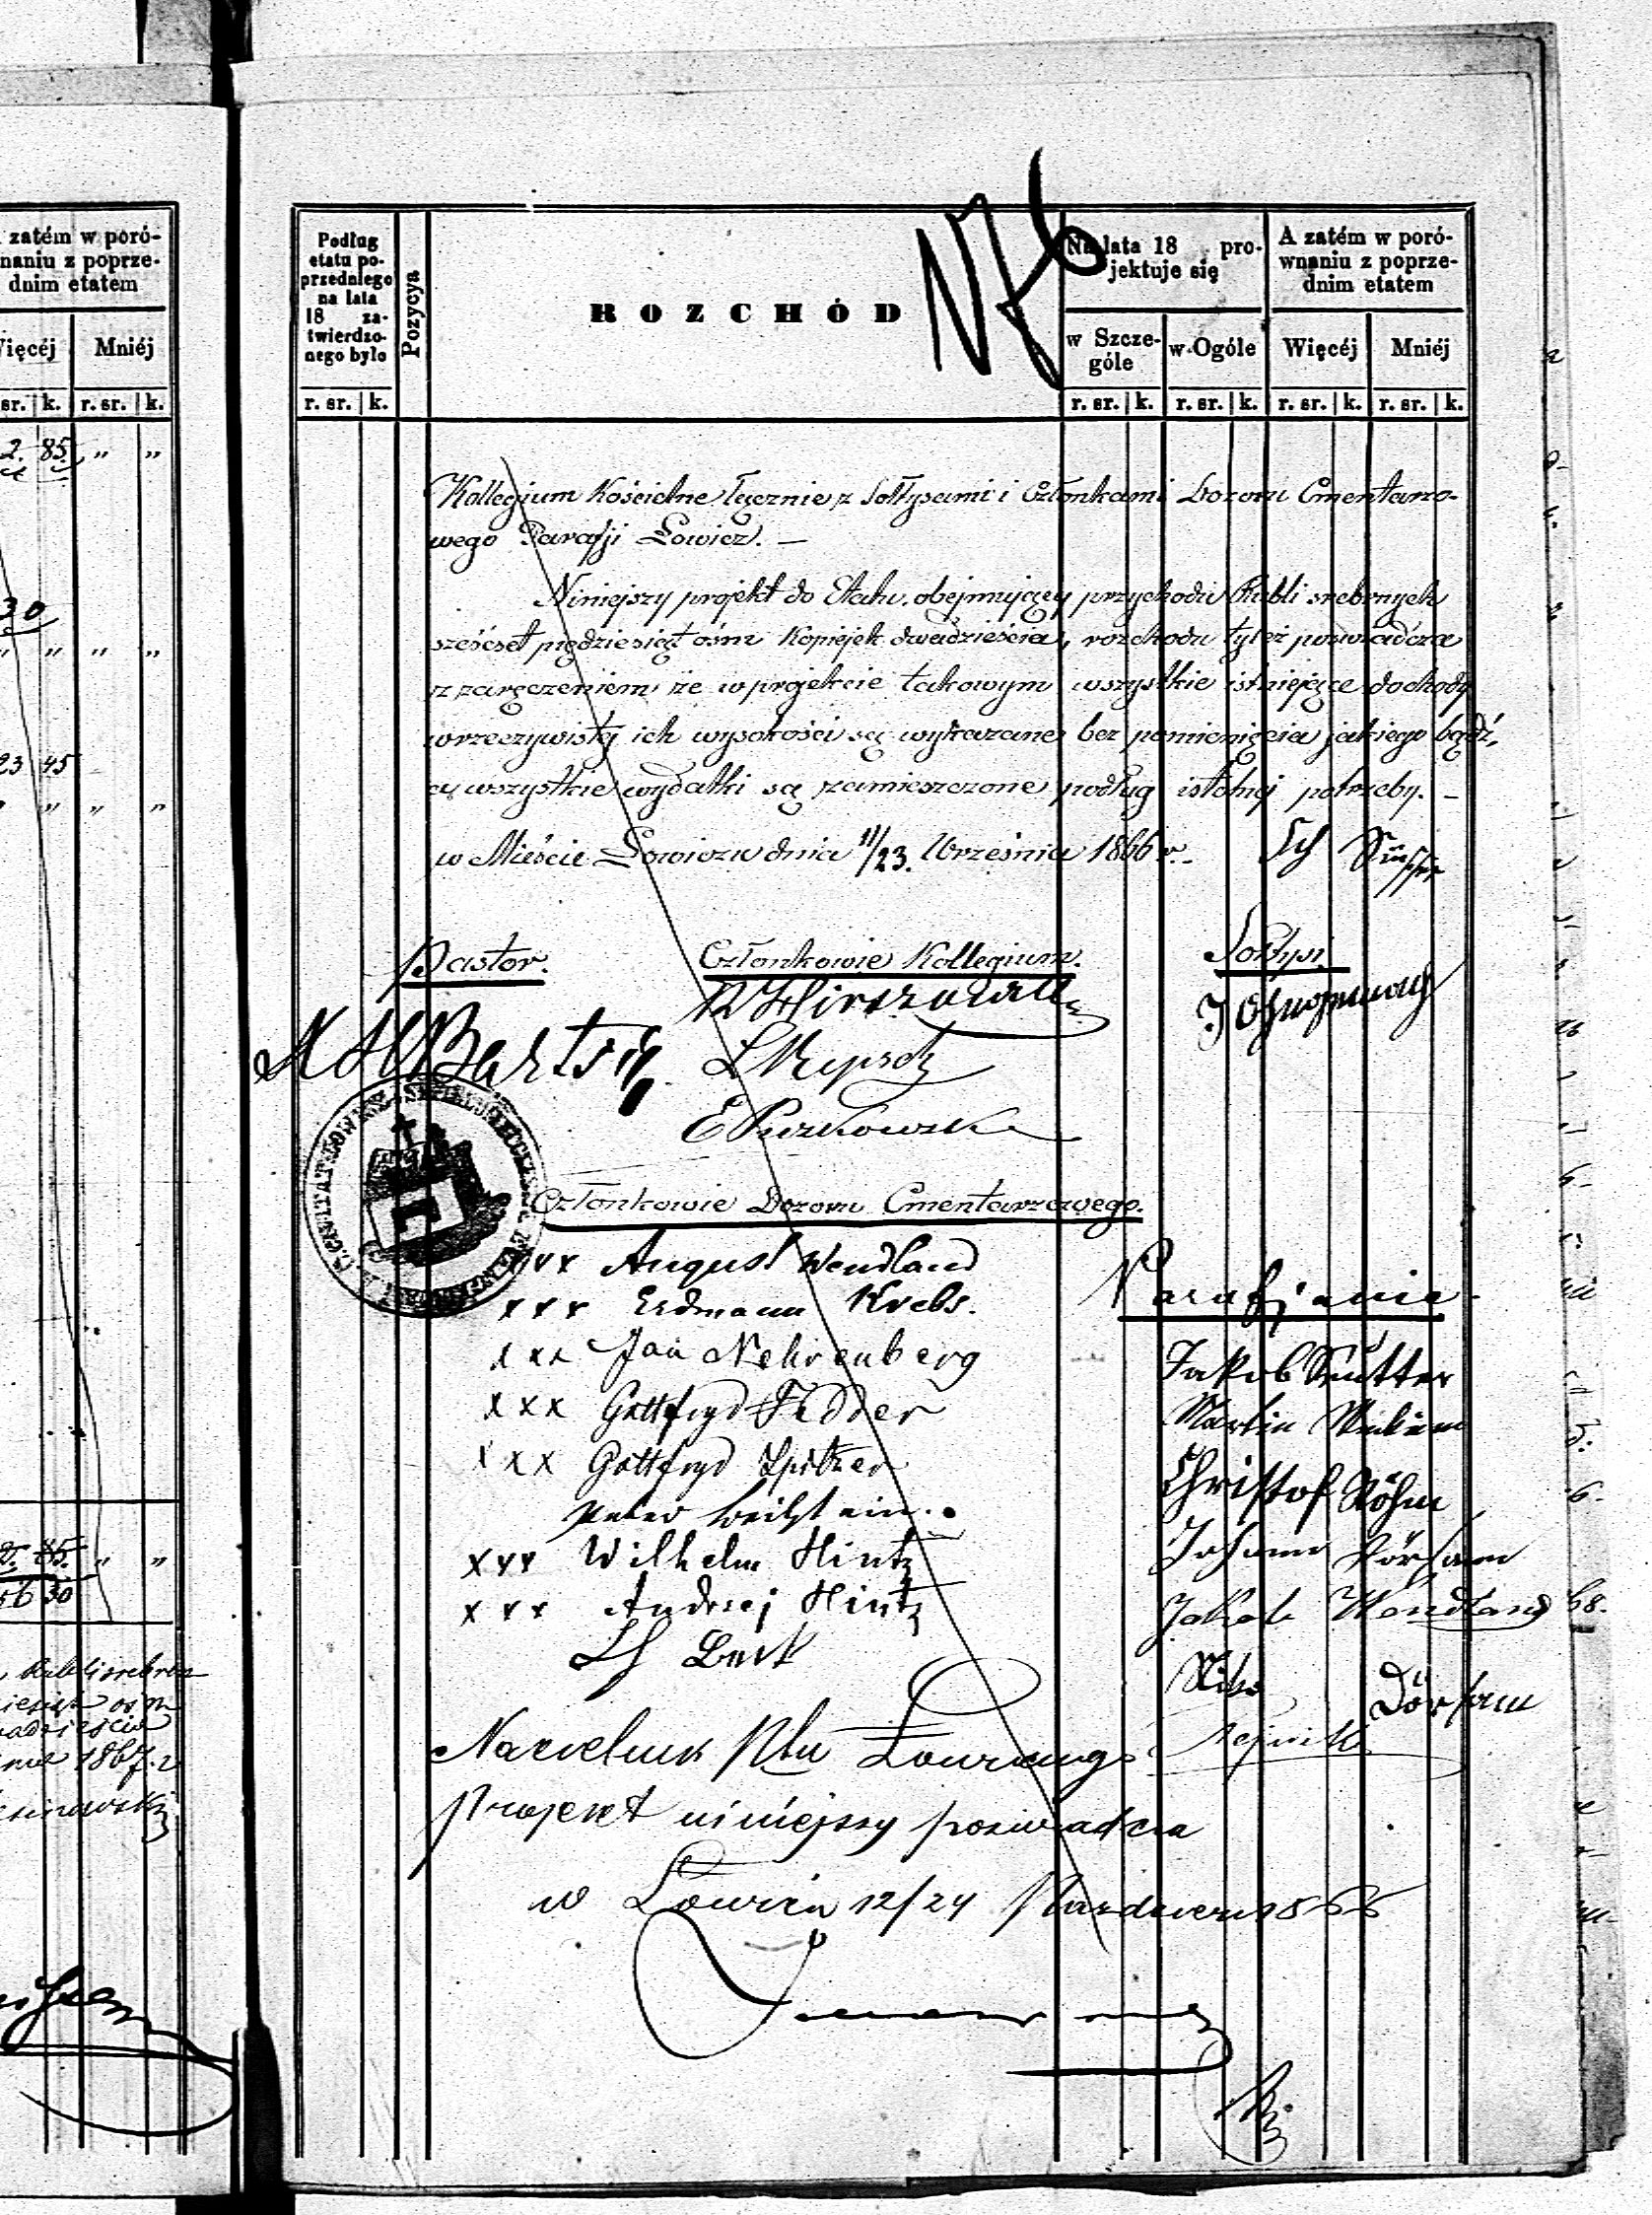 zatém w poró-
naniu z poprze-
dnim etatem
Więcéj Mniéj
sr. k. r. sr. k.
2. 85. " "
30
" " " "
23 45
" " " "
56 30
1867
Podług
etatu po-
przedniego
na lata
18 za-
twierdzo-
nego było
Pozycya
ROZCHÓD
N 6
Na lata 18 pro-
jektuje się
A zatém w poró-
wnaniu z poprze-
dnim etatem
w Szcze-
góle
w Ogóle
Więcéj
Mniéj
r. sr. k. r. sr. k. r. sr. k. r. sr. k. r. sr. k.
Kollegium Kościelne łącznie z Sołtysami i Członkami Dozoru Cmentarzo-
wego Parafji Łowicz. —
Niniejszy projekt do Etatu, obejmujący przychodu Rubli srebrnych
sześćset pięćdziesiąt ośm Kopiejek dwadzieścia, rozchodu tyleż poświadcza
z zaręczeniem że w projekcie takowym wszystkie istniejące dochody
w rzeczywistej ich wysokości są wykazane bez pominięcia jakiego bądź,
cy wszystkie wydatki są zamieszczone podług istotnej potrzeby. —
w Mieście Łowiczu dnia 11/23. Września 1866 r.
Pastor. Członkowie Kollegium. Sołtysi.
Bartsch
Członkowie Dozoru Cmentarzowego.
xxx August Wendland
xxx Erdmann Krebs.
xxx Jan Nehrenberg
xxx Gottfryd Fedder
xxx Gottfryd Spitzer
xxx Wilhelm Hintz
xxx Andrzej Hintz
Parafjanie
Jakob Sutter
Martin
Christof Röhm
Johann Dörsam
Jakob Wendland
Dörsam
Naczelnik Ptu Łowickiego
Projekt niniejszy poświadcza
w Łowiczu 12/24 Października 1866